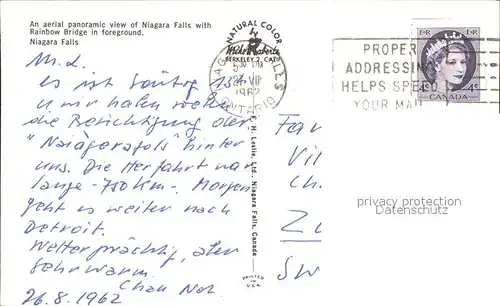 An aerial panoramic view of Niagara Falls with
Rainbow Bridge in foreground.
Niagara Falls
M. L.
es ist Sonntag 13h
u wir haben
die Besichtigung der
"Niàgarafols" hinter
uns. Die Herfahrt war
lange - 750 km. Morgen
geht es weiter nach
Detroit.
Wetter prächtig, aber
sehr warm.
26.8.1962
NATURAL COLOR
Mike Roberts
BERKELEY 2, CALIF.
F. H. Leslie, Ltd., Niagara Falls, Canada
PRINTED IN
U.S.A.
NIAGARA FALLS
1962
ONTARIO
PROPER
ADDRESSING
HELPS SPEED
YOUR MAIL
E II R E II R
4¢ 4¢
CANADA
Fa
Vi
Ch.
Zu
SW
privacy protection
Datenschutz